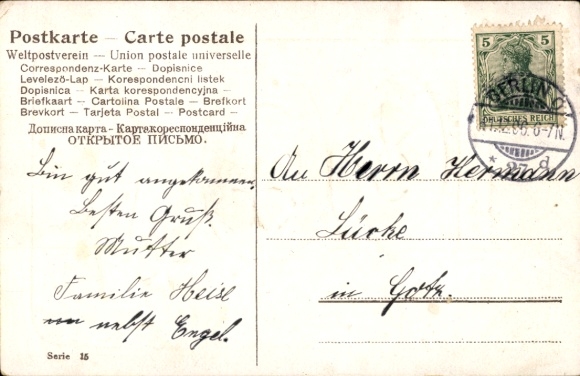 Postkarte — Carte postale
Weltpostverein — Union postale universelle
Correspondenz-Karte — Dopisnice
Levelező-Lap — Korespondencni listek
Dopisnica — Karta korespondencyjna —
Briefkaart — Cartolina Postale — Brefkort
Brevkort — Tarjeta Postal — Postcard —
Дописна карта - Карткакореспонденційна
ОТКРЫТОЕ ПИСЬМО.
Bin gut angekommen.
Besten Gruß.
Mutter
Familie Heise
nebst Engel.
Serie 15
5 5
DEUTSCHES REICH
BERLIN O
6-7N.
* 27 d
An Herrn Hermann
Lücke
in Gotz.